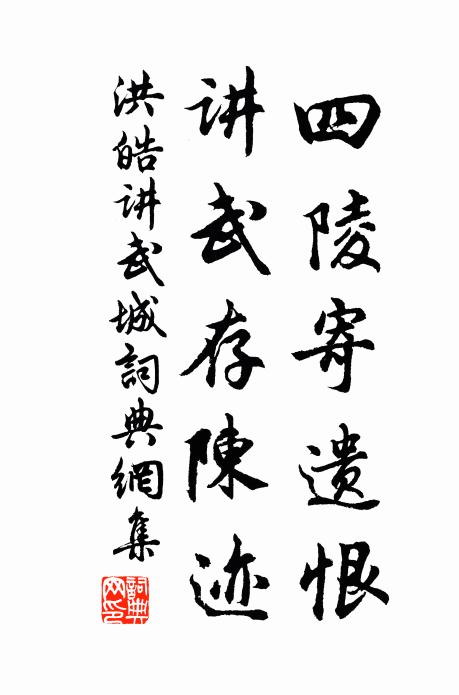 四陵寄遗恨
讲武存陳迹
洪皓讲武城詞典網集
詞典網印